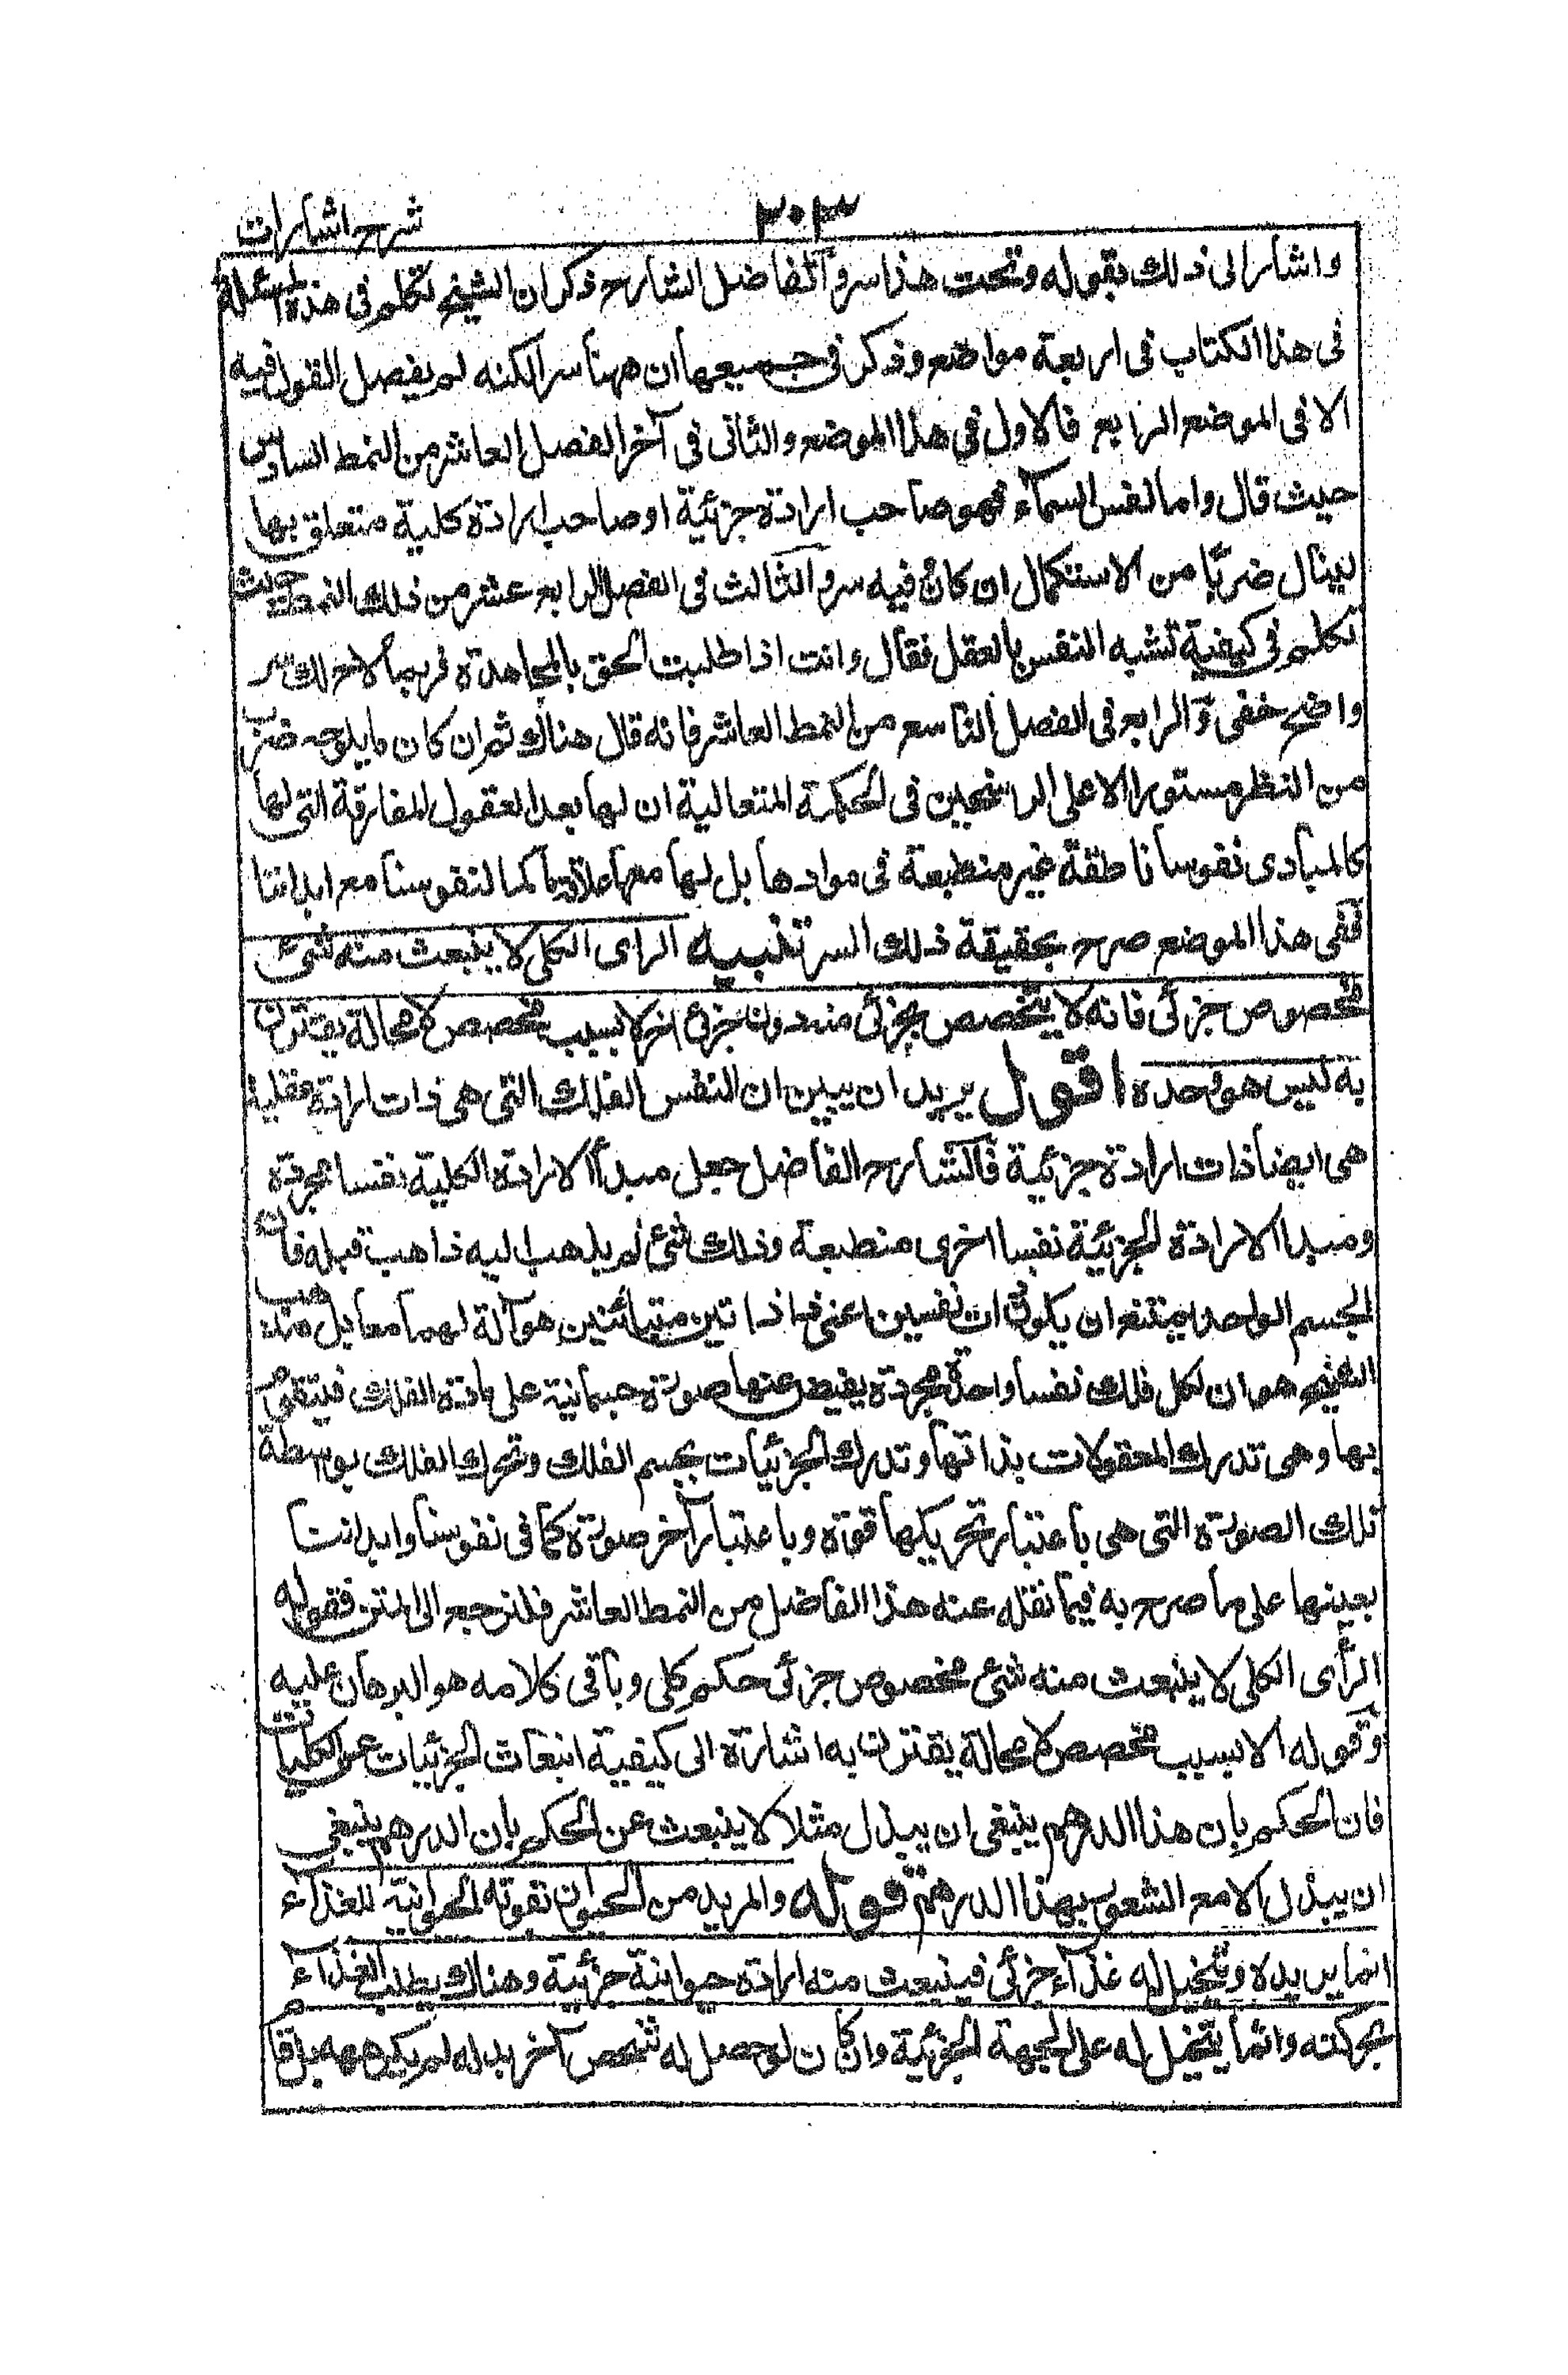 ٣٠٣ شرح اشارات
واشار الى ذلك بقوله وتحت هذا سر والفاضل الشارح ذكر ان الشيخ تكلم فى هذه المسئلة
فى هذا الكتاب فى اربعة مواضع وذكر فى جميعها ان ههنا سرا لكنه لم يفصل القول فيه
الا فى الموضع الرابع فالاول فى هذا الموضع والثانى فى آخر الفصل العاشر من النمط السادس
حيث قال واما نفس السماء فهو صاحب ارادة جزئية او صاحب ارادة كلية متعلق بها
لينال ضربا من الاستكمال ان كان فيه سر والثالث فى الفصل الرابع عشر من ذلك النمط حيث
تكلم فى كيفية تشبه النفس بالعقل فقال وانت اذا طلبت الحق بالمجاهدة فربما لاح لك سر
واضح خفى والرابع فى الفصل التاسع من النمط العاشر فانه قال هناك ثم ان كان ما يلوحه ضرب
من النظر مستورا الا على الراسخين فى الحكمة المتعالية ان لها بعد العقول المفارقة التى لها
كالمبادى نفوسا ناطقة غير منطبعة فى موادها بل لها معها علاقة ما كما لنفوسنا مع ابداننا
ففى هذا الموضع صرح بحقيقة ذلك السر تنبيه الراى الكلى لا ينبعث منه شىء
مخصوص جزئى فانه لا يتخصص بجزئى منه دون جزئى اخر الا بسبب مخصص لا محالة يقترن
به ليس هو وحده اقول يريد ان يبين ان النفس الفلك التى هى ذات ارادة عقلية
هى ايضا ذات ارادة جزئية فالشارح الفاضل جعل مبدأ الارادة الكلية نفسا مجردة
ومبدا الارادة الجزئية نفسا اخرى منطبعة وذلك شئ لم يذهب اليه ذاهب قبله فان
الجسم الواحد يمتنع ان يكون ذات نفسين اعنى ذا ذاتين متبائنتين هو آلة لهما معا بل مذهب
الشيخ هو ان لكل فلك نفسا واحدة مجردة يفيض عنها صورة جسمانية على مادة الفلك فيتقوم
بها وهى تدرك المعقولات بذاتها وتدرك الجزئيات بجسم الفلك وتحرك الفلك بواسطة
تلك الصورة التى هى باعتبار تحريكها قوة وباعتبار آخر صورة كما فى نفوسنا وابداننا
بعينها على ما صرح به فيما نقله عنه هذا الفاضل من النمط العاشر فلنرجع الى المتن فقوله
الرأى الكلى لا ينبعث منه شئ مخصوص جزئى حكم كلى وباقى كلامه هو البرهان عليه
وقوله الا بسبب مخصص لا محالة يقترن به اشارة الى كيفية انبعاث الجزئيات عن الكليات
فان الحكم بان هذا الدرهم ينبغى ان يبذل مثلا لا ينبعث عن الحكم بان الدرهم ينبغى
ان يبذل الا مع الشعور بهذا الدرهم قوله والمريد من الحيوان بقوته الحيوانية للغذاء
انما يريده ويتخيل له غذاء جزئى فينبعث منه ارادة حيوانية جزئية وهناك يطلب الغذاء
بحركته وانما يتخيل له على الجهة الجزئية وان كان لو حصل له شخص آخر بدله لم يكرهه بل قام